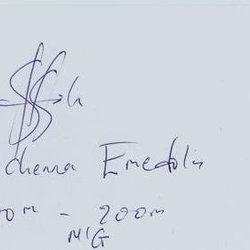 chenna Emedolu
00m - 200m
NIG